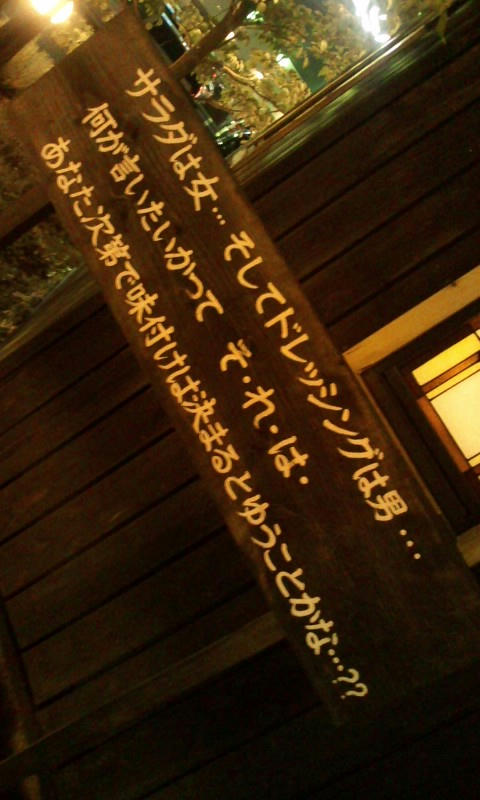 サラダは女… そしてドレッシングは男…
何が言いたいかって そ・れ・は・
あなた次第で味付けは決まるとゆうことかな…??